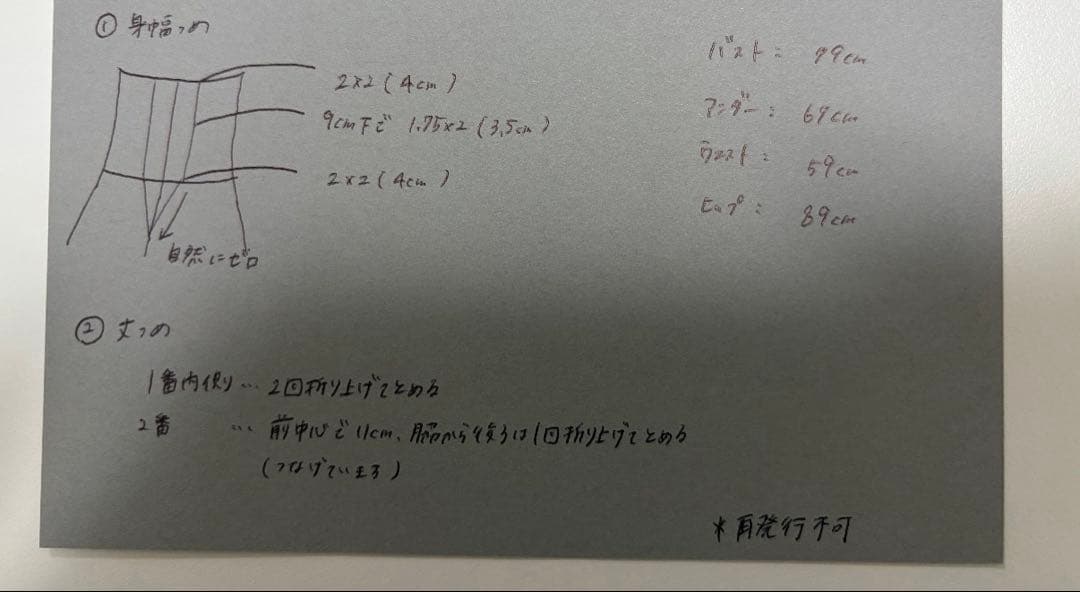 ① 身幅つめ
2×2(4cm)
9cm下で 1.75×2(3.5cm)
2×2(4cm)
自然にゼロ
バスト: 79cm
アンダー: 69cm
ウエスト: 59cm
ヒップ: 89cm
② 丈つめ
1番内側り… 2回折り上げてとめる
2番 … 前中心で11cm、脇から後ろは1回折り上げてとめる
(つなげています)
*再発行不可